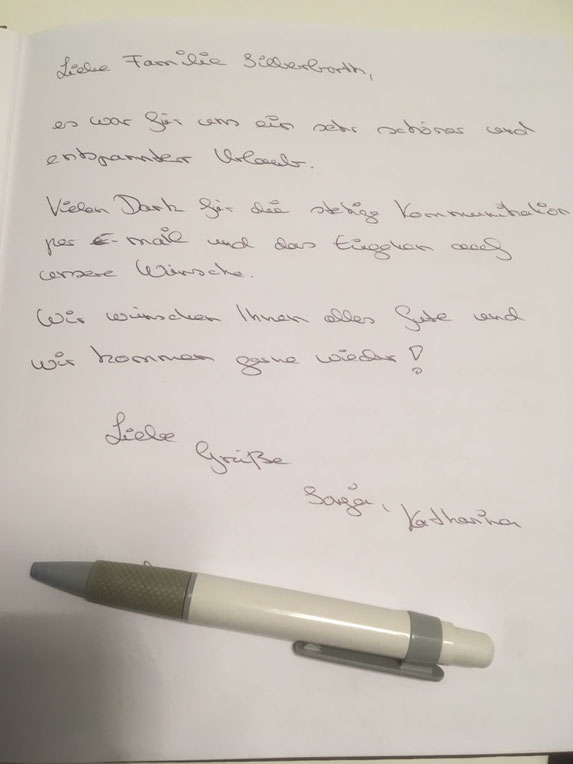 Liebe Familie Silberborth,
es war für uns ein sehr schöner und
entspannter Urlaub.
Vielen Dank für die stetige Kommunikation
per E-mail und das Eingehen auf
unsere Wünsche.
Wir wünschen Ihnen alles Gute und
wir kommen gerne wieder!
Liebe
Grüße
Katharina